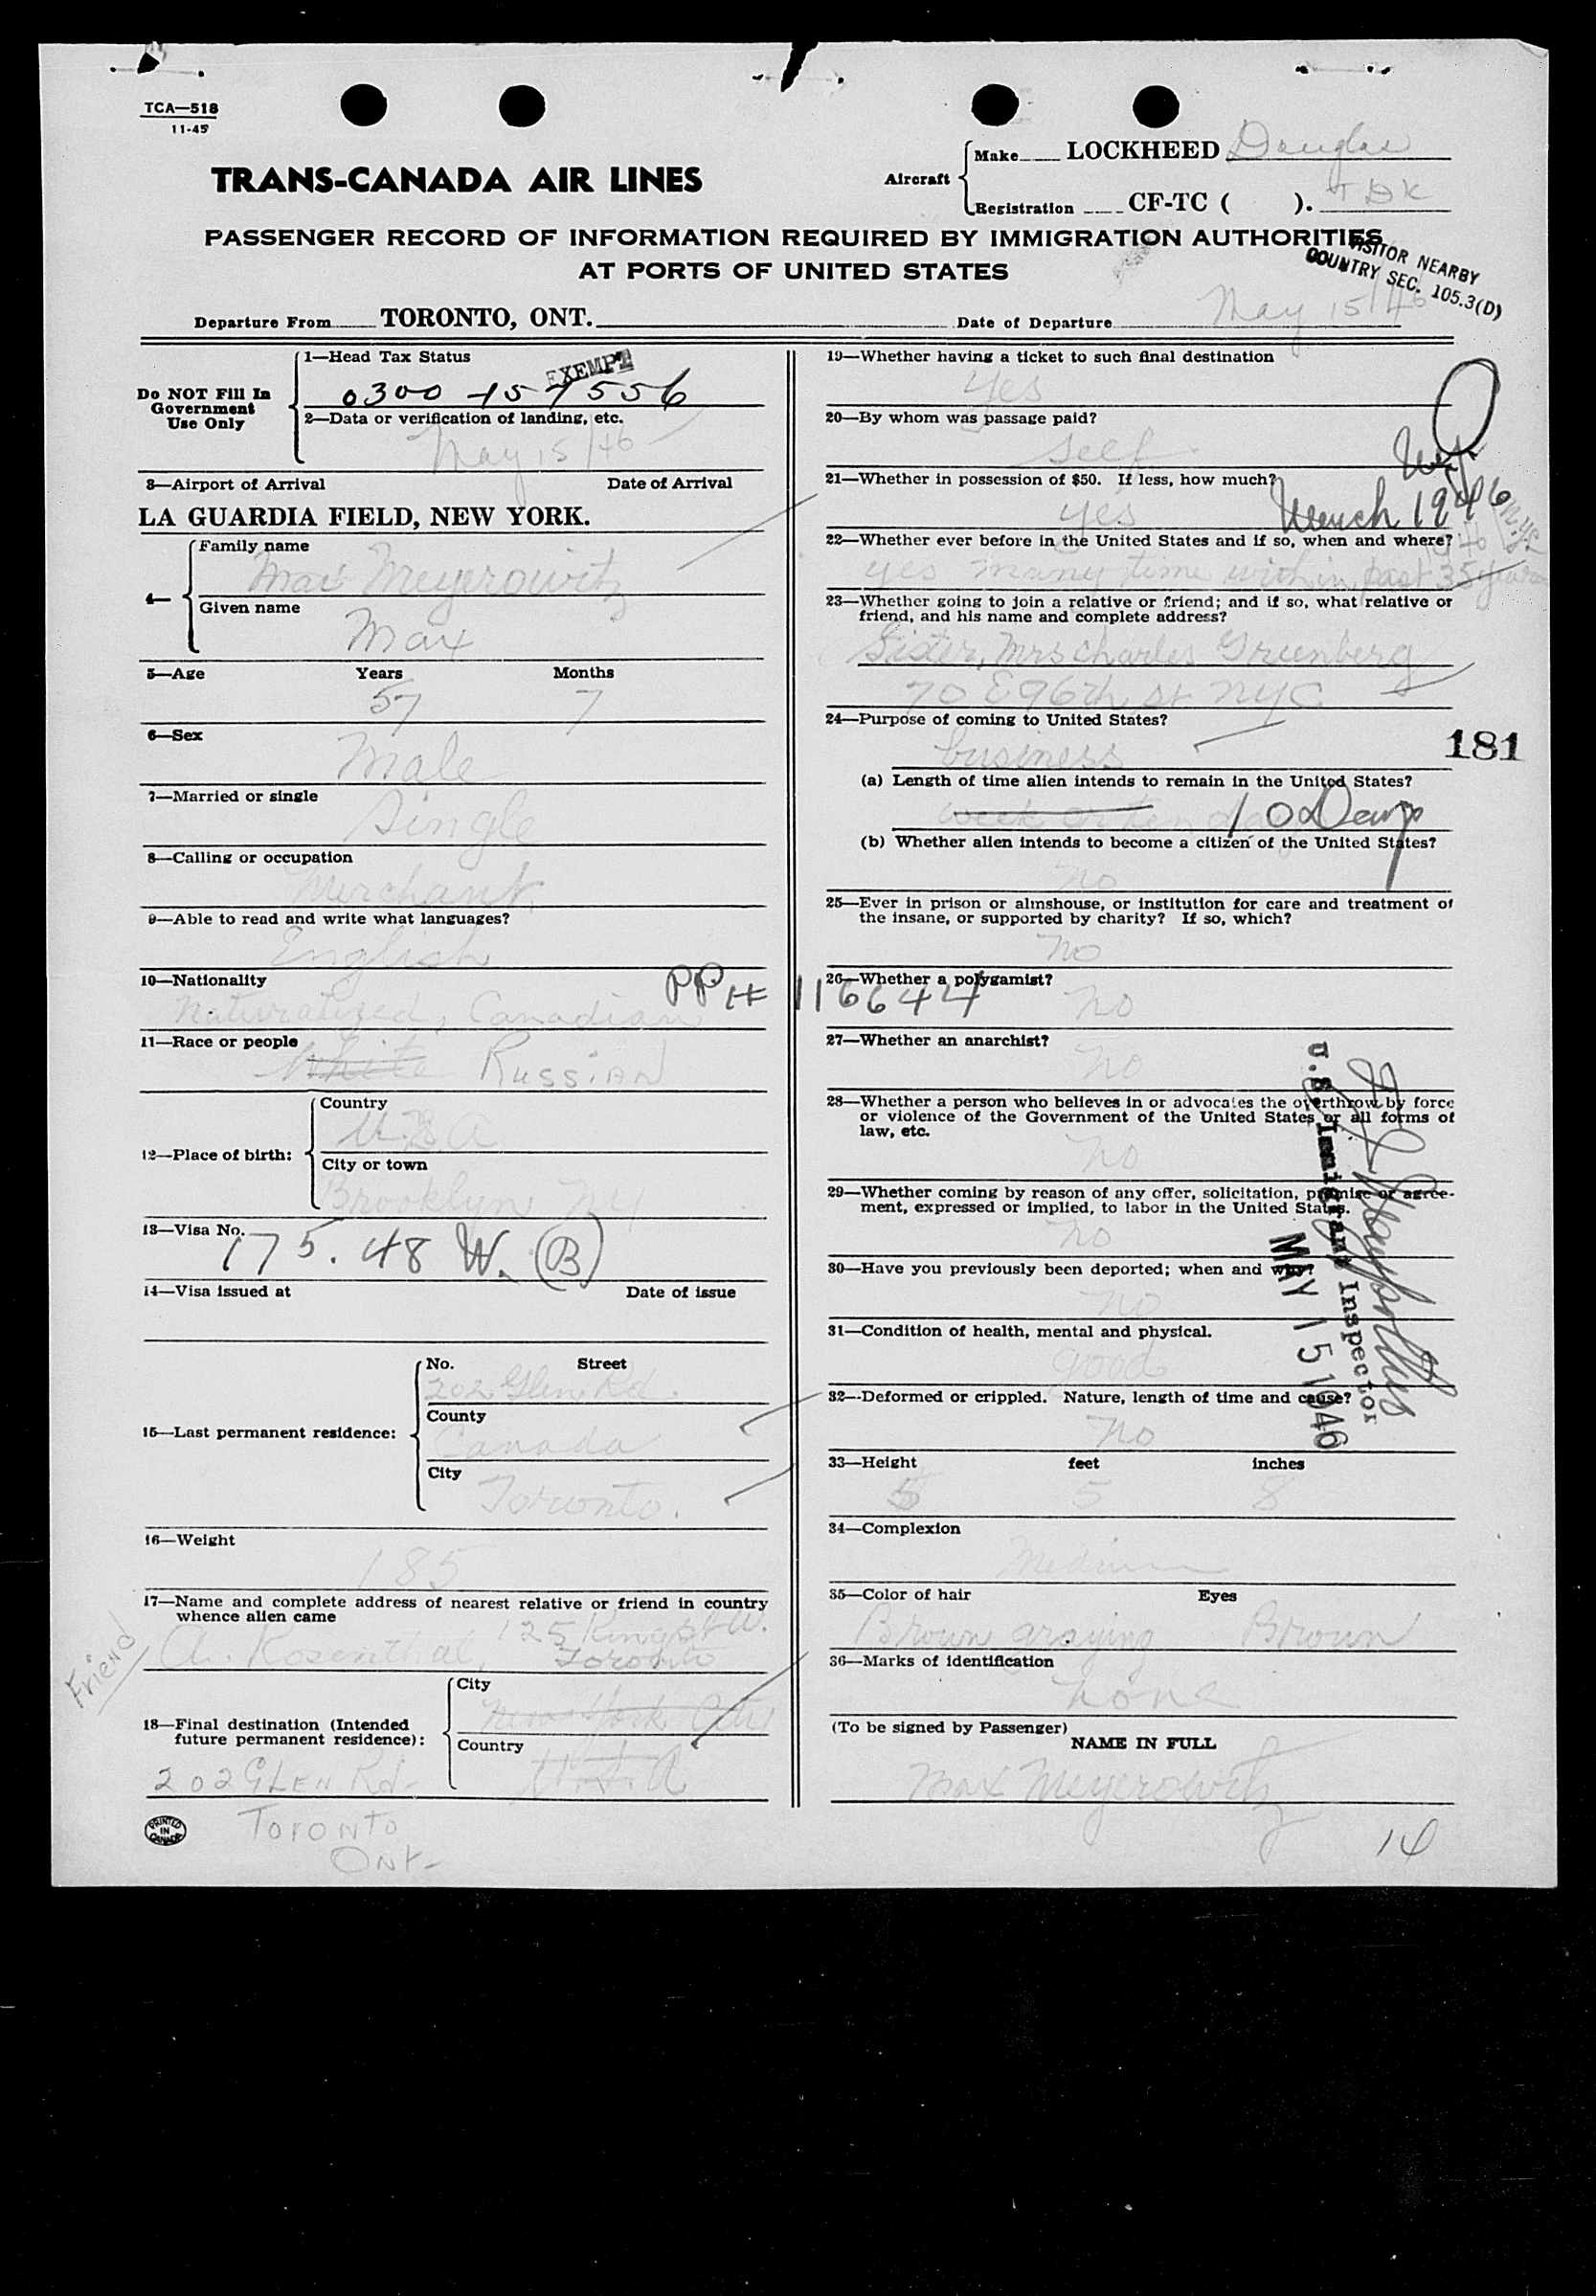 TCA—518
11-45
TRANS-CANADA AIR LINES
Aircraft
Make LOCKHEED Douglas
Registration CF-TC ( ). TDK
PASSENGER RECORD OF INFORMATION REQUIRED BY IMMIGRATION AUTHORITIES
AT PORTS OF UNITED STATES
VISITOR NEARBY
COUNTRY SEC. 105.3(D)
Departure From TORONTO, ONT. Date of Departure May 15/46
Do NOT Fill In
Government
Use Only
1—Head Tax Status
EXEMPT
0300
2—Data or verification of landing, etc.
May 15/46
3—Airport of Arrival Date of Arrival
LA GUARDIA FIELD, NEW YORK.
4—
Family name
Max Meyerowitz
Given name
Max
5—Age Years Months
57 7
6—Sex
Male
7—Married or single
Single
8—Calling or occupation
Merchant
9—Able to read and write what languages?
English
10—Nationality
PP # 116644
Naturalized, Canadian
11—Race or people
White RUSSIAN
12—Place of birth:
Country
U.S.A
City or town
Brooklyn NY
13—Visa No.
175.48 W. (B)
14—Visa issued at Date of issue
15—Last permanent residence:
No. Street
202 Glen Rd.
County
Canada
City
Toronto.
16—Weight
185
17—Name and complete address of nearest relative or friend in country
whence alien came
Friend
A. Rosenthal, 125 King St W.
Toronto
18—Final destination (Intended
future permanent residence):
City
New York City
Country
U.S.A
202 GLEN Rd-
TORONTO
ONT-
PRINTED
IN
CANADA
19—Whether having a ticket to such final destination
Yes
20—By whom was passage paid?
Self
21—Whether in possession of $50. If less, how much?
yes
22—Whether ever before in the United States and if so, when and where?
March 1946
yes many time within past 35 years
23—Whether going to join a relative or friend; and if so, what relative or
friend, and his name and complete address?
Sister, Mrs Charles Greenberg
70 E 96th St NYC
24—Purpose of coming to United States?
business
181
(a) Length of time alien intends to remain in the United States?
week or ten days 10 Days
(b) Whether alien intends to become a citizen of the United States?
no
25—Ever in prison or almshouse, or institution for care and treatment of
the insane, or supported by charity? If so, which?
no
26—Whether a polygamist?
no
27—Whether an anarchist?
no
28—Whether a person who believes in or advocates the overthrow by force
or violence of the Government of the United States or all forms of
law, etc.
no
29—Whether coming by reason of any offer, solicitation, promise or agree-
ment, expressed or implied, to labor in the United States.
no
30—Have you previously been deported; when and why?
no
31—Condition of health, mental and physical.
good
32—Deformed or crippled. Nature, length of time and cause?
no
U.S. Immigrant Inspector
MAY 15 1946
33—Height feet inches
5 5 8
34—Complexion
Medium
35—Color of hair Eyes
Brown graying Brown
36—Marks of identification
none
(To be signed by Passenger)
NAME IN FULL
Max Meyerowitz
14